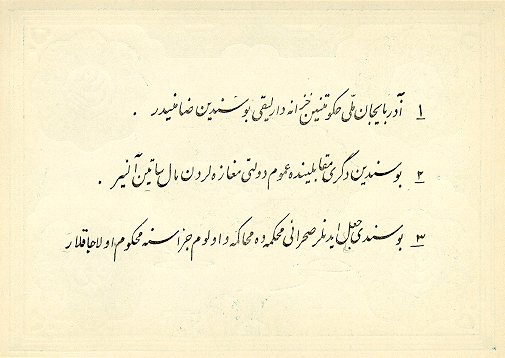 ۱ آذربایجان ملّی حکومتنین خزانه دارلیقی بو سندین ضامنیدر .
۲ بو سندین دگری مقابلینده عموم دولتی مغازه لردن مال ساتین آلنیر .
۳ بو سندی جعل ایدنلر صحرائی محکمه ده محاکمه و اولوم جزاسنه محکوم اولاجاقلار